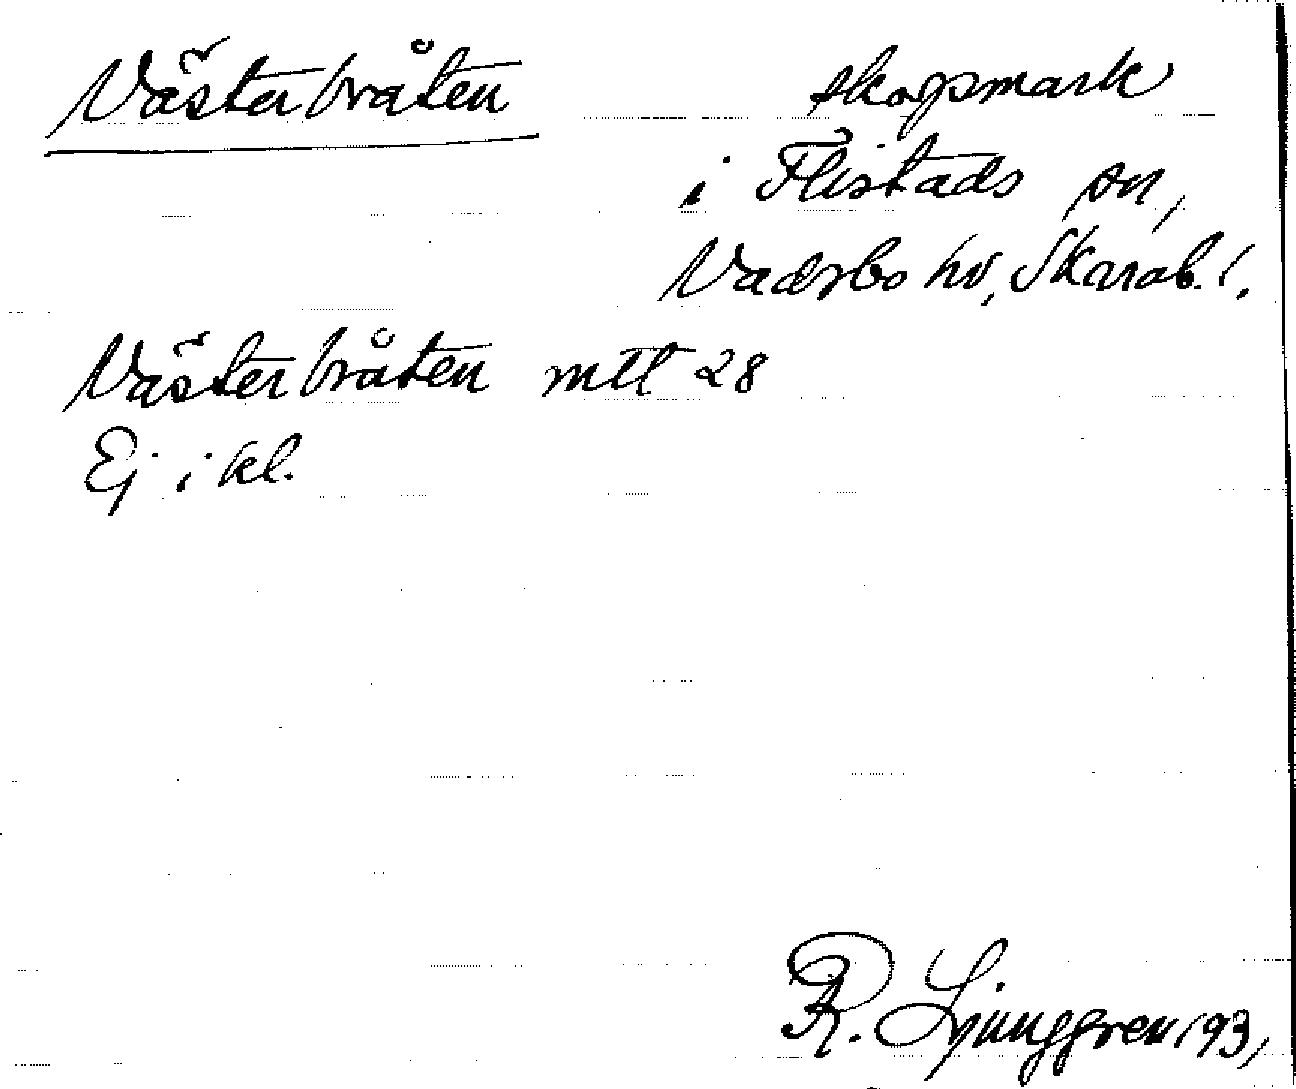 Västerbråten skogsmark
i Flistads sn,
Vadsbo hd, Skarab. l.
Västerbråten mtl 28
Ej i kl.
R. Ljunggren 193,